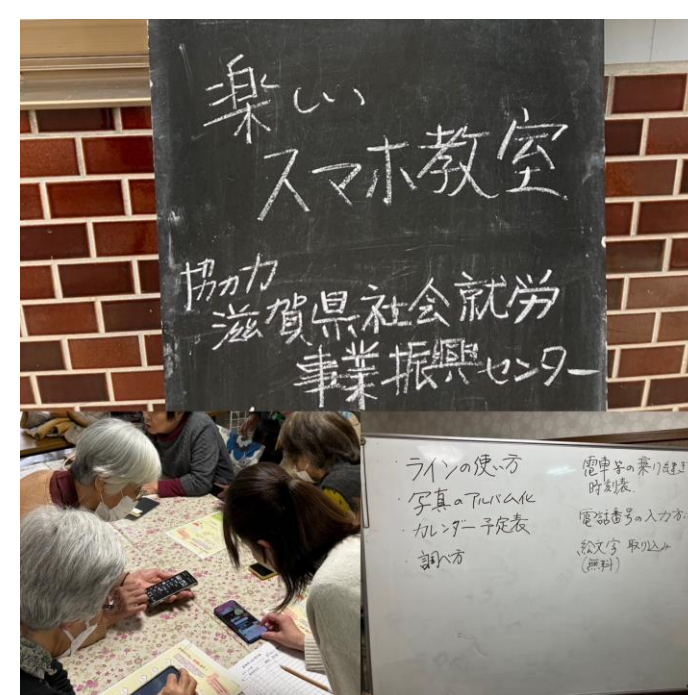 楽しい
スマホ教室
協力
滋賀県社会就労
事業振興センター
・ラインの使い方
・写真のアルバム化
・カレンダー予定表
・調べ方
電車等の乗り継ぎ
時刻表
電話番号の入力方
絵文字 取り込み
(無料)